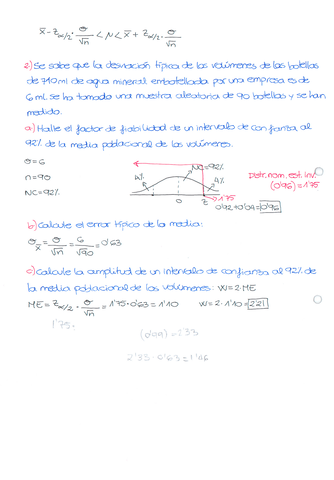 x̄ - Zα/2 · σ/√n < μ < x̄ + Zα/2 · σ/√n
2) Se sabe que la desviación típica de los volúmenes de las botellas
de 710 ml de agua mineral embotellada por una empresa es de
6 ml. se ha tomado una muestra aleatoria de 90 botellas y se han
medido.
a) Halle el factor de fiabilidad de un intervalo de confianza al
92% de la media poblacional de los volúmenes.
σ=6
n=90
NC=92%
NC=92%
4%
4%
0
Z
1'75
Distr. nom. est. inv.
(0'96) = 1'75
0'92+0'04=0'96
b) Calcule el error típico de la media:
σx̄ = σ/√n = 6/√90 = 0'63
c) Calcule la amplitud de un intervalo de confianza al 92% de
la media poblacional de los volúmenes: W=2·ME
ME = Zα/2 · σ/√n = 1'75·0'63 = 1'10 W=2·1'10=2'21
1'75·